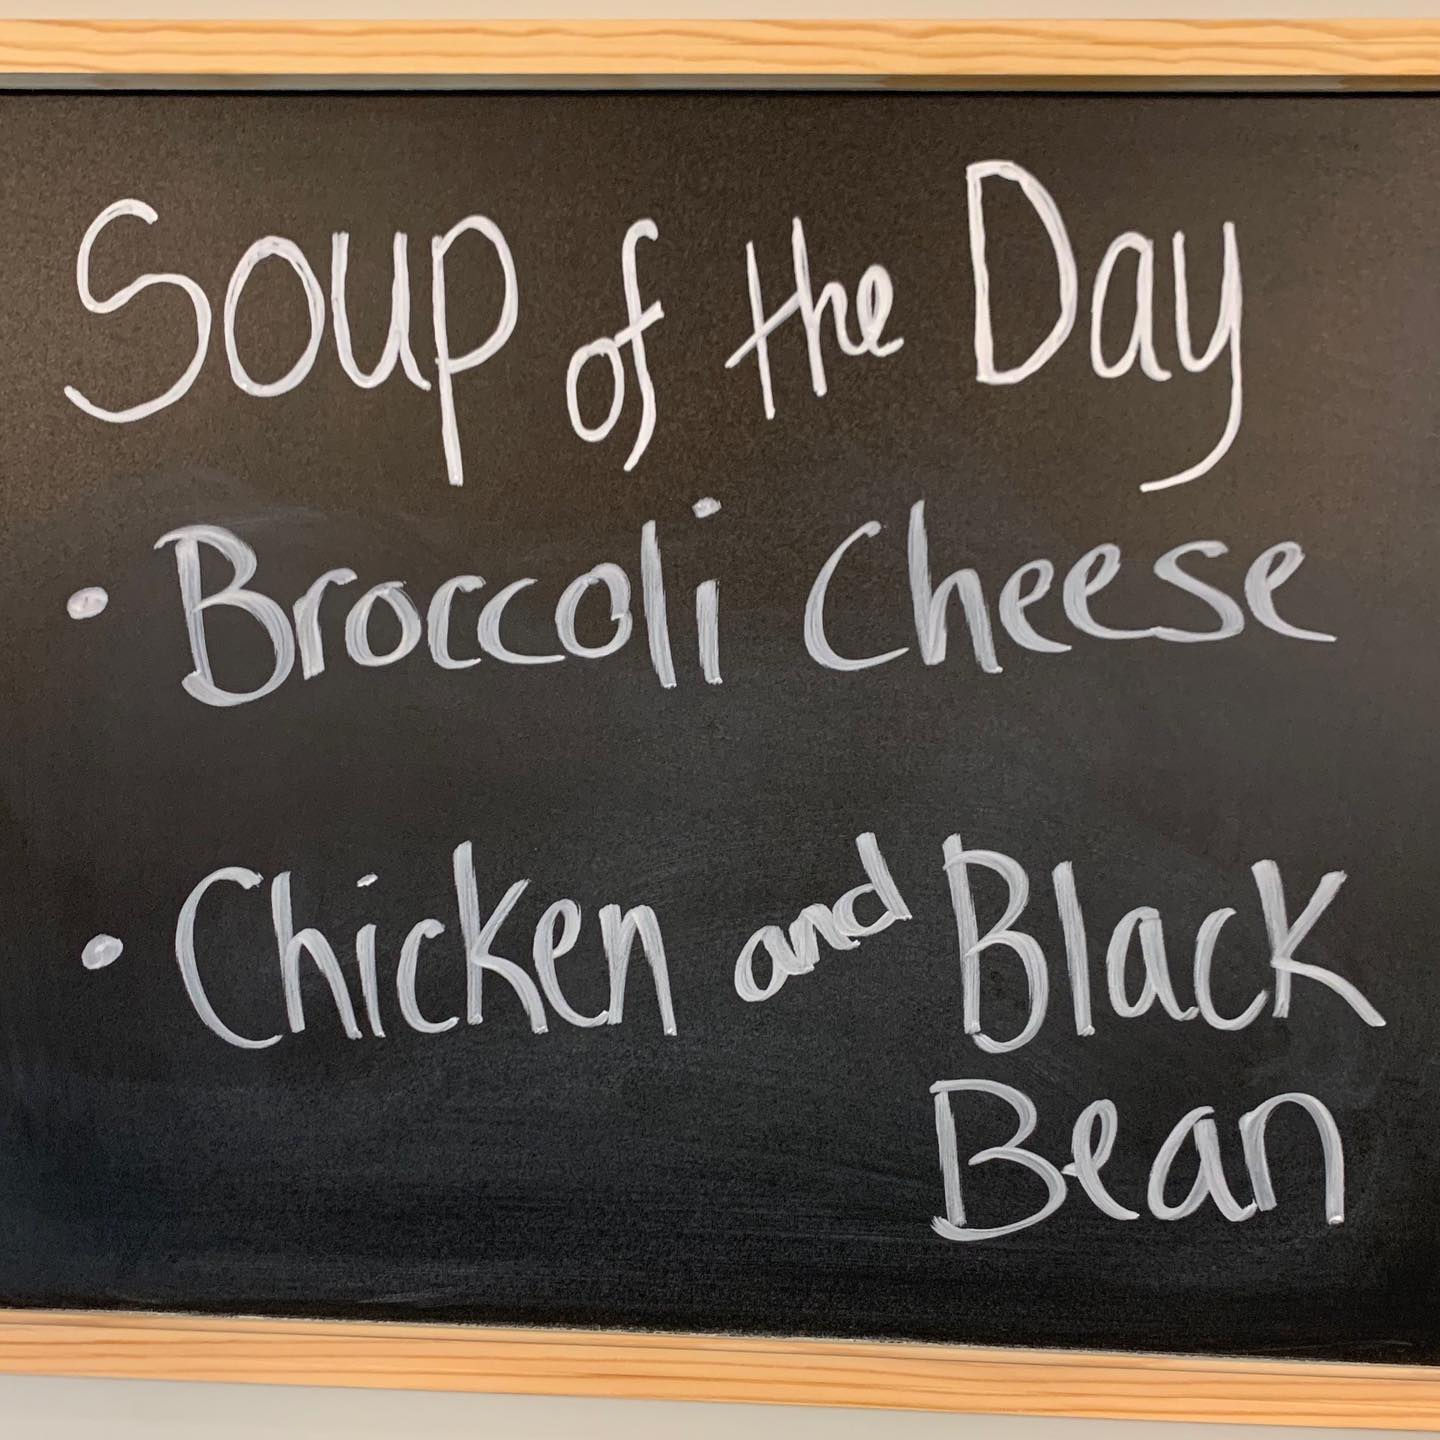 Soup of the Day
• Broccoli Cheese
• Chicken and Black
Bean